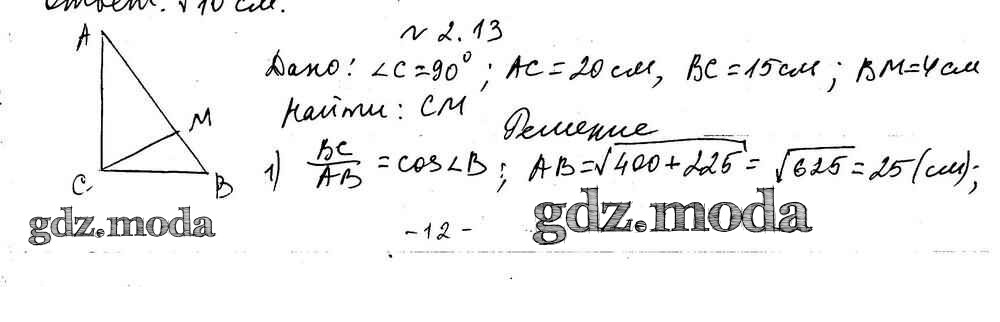 Ответ: √10 см.
A
N 2.13
Дано: ∠C=90°; AC=20 см, BC=15 см; BM=4 см
M
Найти: CM
Решение
1) BC/AB = cos∠B; AB=√400+225 = √625 = 25 (см);
C
B
gdz.moda
-12-
gdz.moda